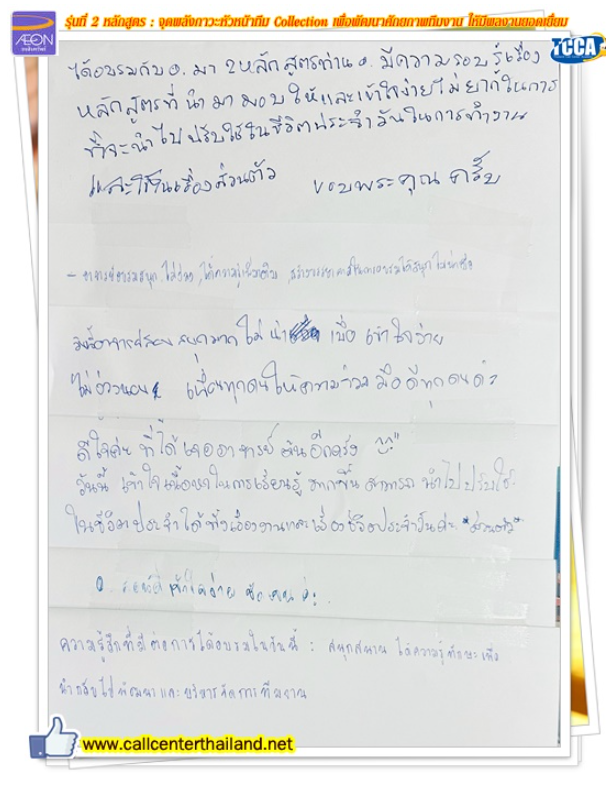 รุ่นที่ 2 หลักสูตร : จุดพลังภาวะหัวหน้าทีม Collection เพื่อพัฒนาศักยภาพทีมงาน ให้มีผลงานยอดเยี่ยม
ÆON
TCCA
ได้อบรมกับ อ. มา 2 หลักสูตรท่าน อ. มีความรอบรู้เรื่อง
หลักสูตรที่นำมามอบให้และเข้าใจง่ายไม่ยากในการ
ที่จะนำไปปรับใช้ในชีวิตประจำวันในการทำงาน
และใช้ในเรื่องส่วนตัว ขอบพระคุณครับ
วันนี้อาจารย์สอนสนุกมากไม่น่าเบื่อ เข้าใจง่าย
ไม่ง่วงนอน เพื่อนทุกคนให้ความร่วมมือดีทุกคนค่ะ
ดีใจค่ะที่ได้เจออาจารย์ อีกครั้ง
วันนี้เข้าใจเนื้อหาในการเรียนรู้มากขึ้นสามารถนำไปปรับใช้
ในชีวิตประจำได้ทั้งเรื่องงานและเรื่องชีวิตประจำวันค่ะ
อ. เข้าใจง่าย
ความรู้สึกที่มีต่อการได้อบรมในวันนี้ : สนุกสนาน ได้ความรู้ทักษะเพื่อ
นำกลับไปพัฒนาและบริหารจัดการทีมงาน
www.callcenterthailand.net